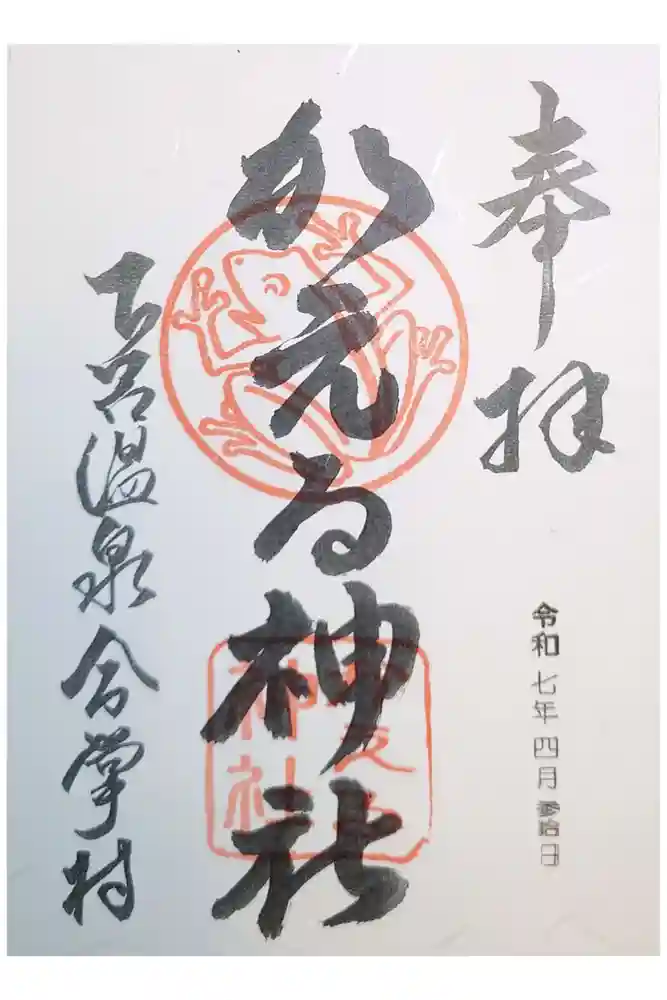 奉拝
令和七年四月参拾日
かえる神社
神社
下呂温泉合掌村